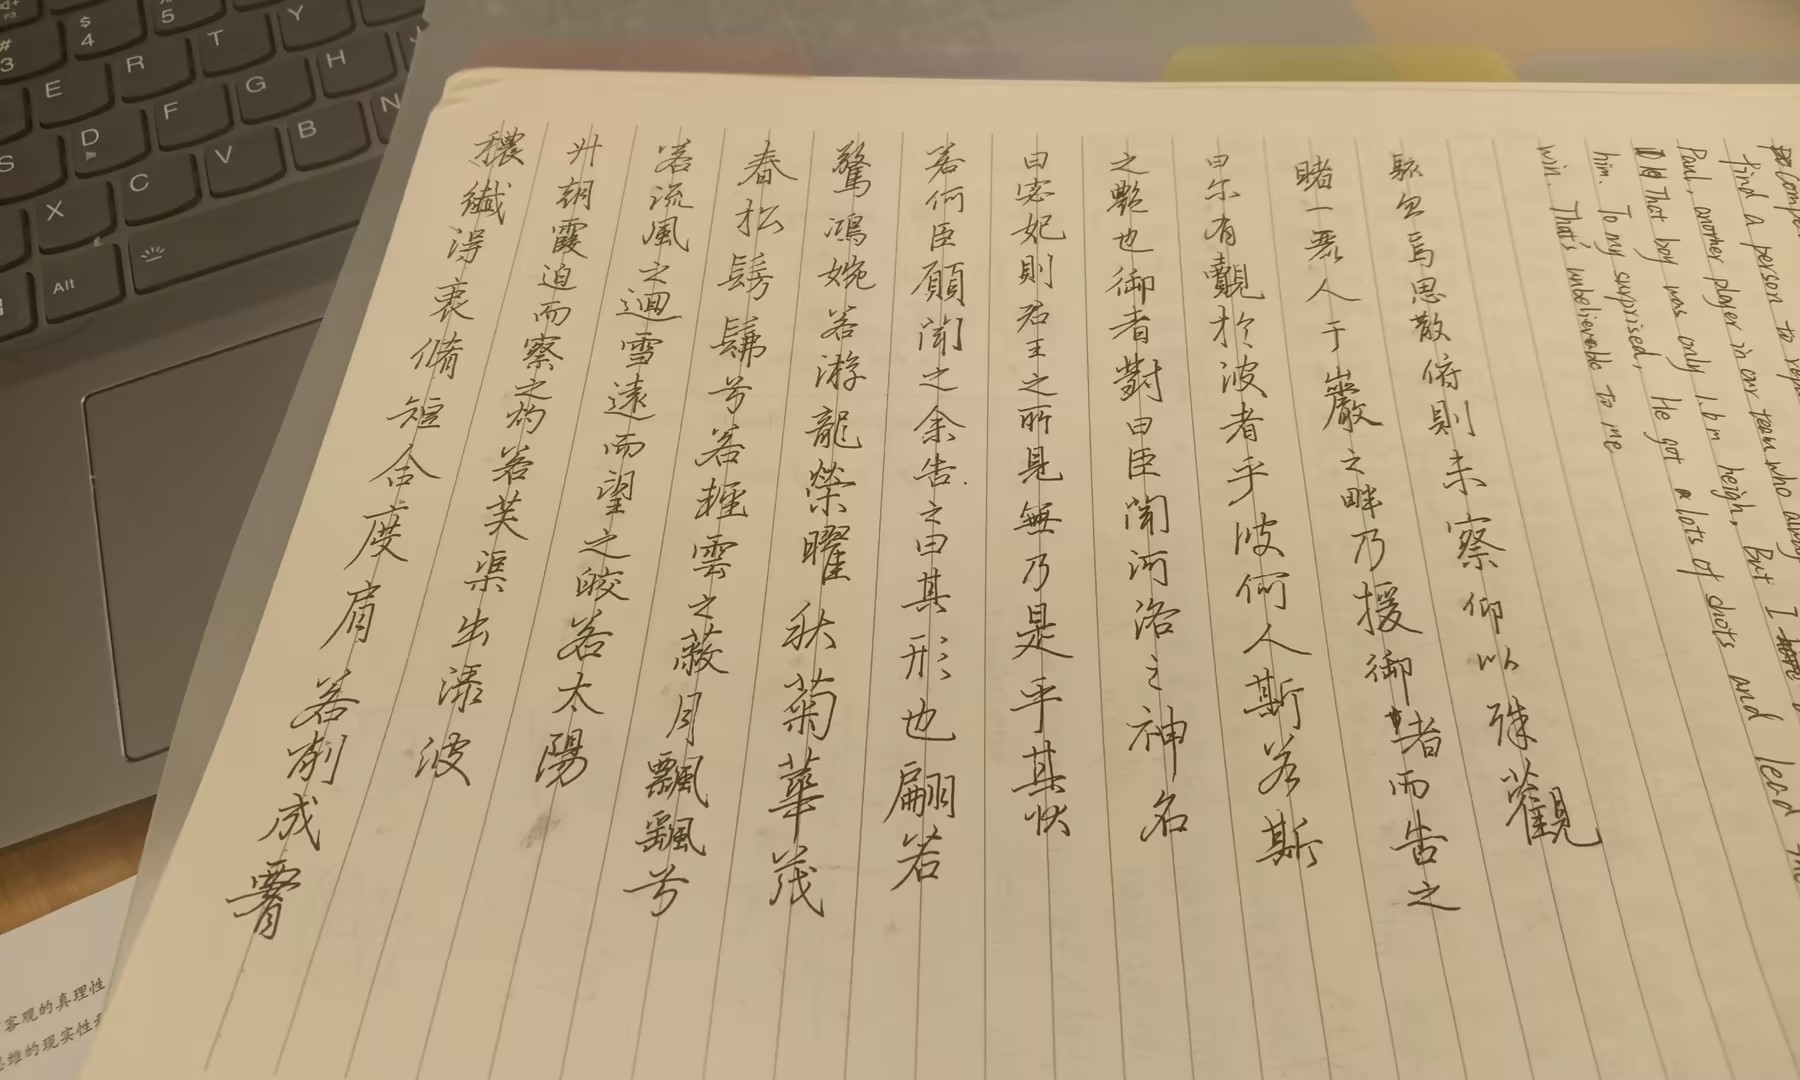 find a person to
Paul, another player in our team who
That boy was only 1.6m heigh, But I
him. To my surprised, He got a lots of shots and lead
win. That's unbelievable to me
駭忽焉思散俯則未察仰以殊觀
睹一麗人于巖之畔乃援御者而告之
曰尔有覿於波者乎彼何人斯若斯
之艷也御者對曰臣聞河洛之神名
曰宓妃則君王之所見無乃是乎其状
若何臣願聞之余告之曰其形也翩若
驚鴻婉若游龍榮曜秋菊華茂
春松髣髴兮若輕雲之蔽月飄飖兮
若流風之迴雪遠而望之皎若太陽
升朝霞迫而察之灼若芙渠出淥波
穠纖得衷脩短合度肩若削成
客观的真理性
思维的现实性
$
4
5
#
3
E
R
T
Y
S
D
F
G
H
X
C
V
B
N
Alt